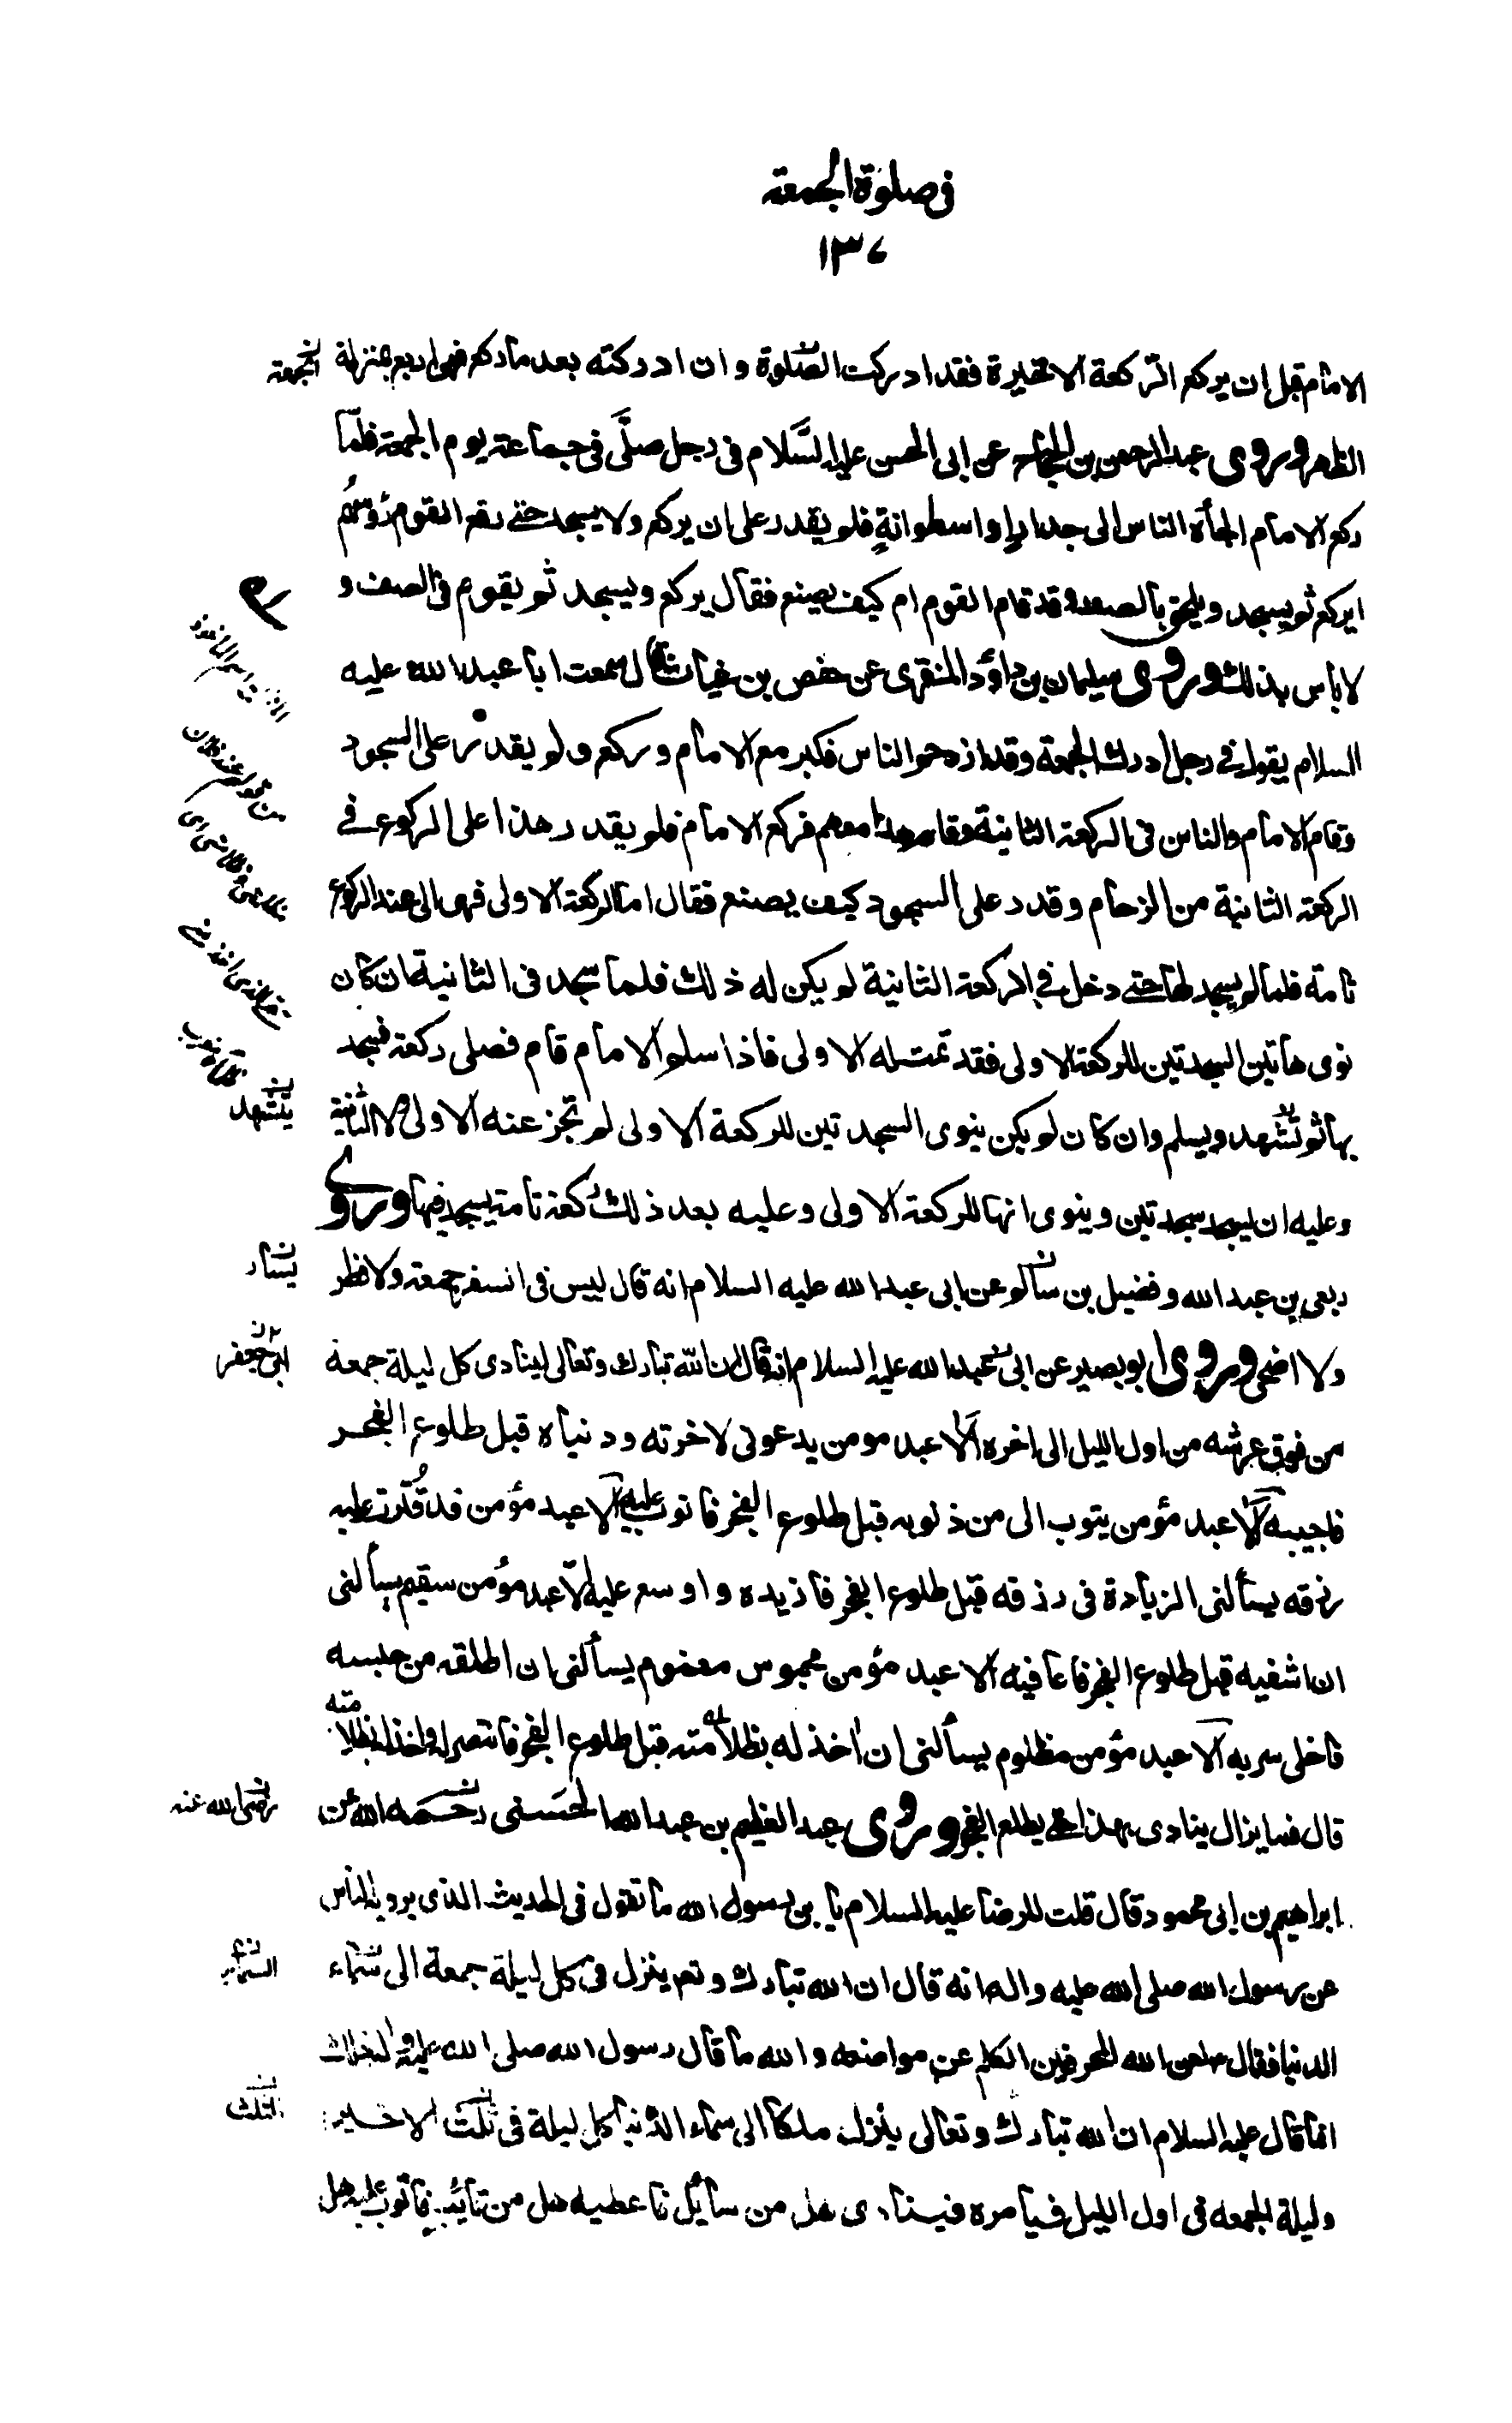 فى صلوة الجمعة
١٣٧
الامام قبل ان يركع الركعة الاخيرة فقد ادركت الصلوة وان ادركته بعد ما ركع فهى اربع بمنزلة
الجمعة
الظهر وروى عبد الرحمن بن الحجاج عن ابى الحسن عليه السَّلام فى رجل صلَّى فى جماعة يوم الجمعة فلمّا
ركع الامام الجأه الناس الى جدار او اسطوانةٍ فلم يقدر على ان يركع ولا يسجد حتى رفع القوم رؤسهم
ايركع ثم يسجد ويلحق بالصف وقد قام القوم ام كيف يصنع فقال يركع ويسجد ثم يقوم فى الصف و
لا باس بذلك وروى سليمان بن داؤد المنقرى عن حفص بن غياث قال سمعت ابا عبد الله عليه
السلام يقول فى رجل ادرك الجمعة وقد ازدحم الناس فكبر مع الامام وركع ولم يقدر على السجود
وقام الامام والناس فى الركعة الثانية وقام هذا معهم فركع الامام فلم يقدر هذا على الركوع فى
الركعة الثانية من الزحام وقدر على السجود كيف يصنع فقال اما الركعة الاولى فهى الى عند الركوع
تامة فلما لم يسجد لها حتى دخل فى الركعة الثانية لم يكن له ذلك فلما سجد فى الثانية فان كان
نوى هاتين السجدتين للركعة الاولى فقد تمت له الاولى فاذا سلم الامام قام فصلى ركعة فسجد
بها ثم تشهد ويسلم وان كان لم يكن ينوى السجدتين للركعة الاولى لم تجز عنه الاولى ولا الثانية
يتشهد
وعليه ان يسجد سجدتين وينوى انهما للركعة الاولى وعليه بعد ذلك ركعة تامة يسجد فيها وروى
ربعى بن عبد الله وفضيل بن سالم عن ابى عبد الله عليه السلام انه قال ليس فى السفر جمعة ولا فطر
يسار
ولا اضحى وروى ابو بصير عن ابى عبد الله عليه السلام انه قال ان الله تبارك وتعالى لينادى كل ليلة جمعة
ابى جعفر
من فوق عرشه من اول الليل الى اخره الا عبد مومن يدعونى لاخرته ودنياه قبل طلوع الفجر
فاجيبه الا عبد مؤمن يتوب الى من ذنوبه قبل طلوع الفجر فاتوب عليه الا عبد مؤمن قد قُتّرت عليه
رزقه يسألنى الزيادة فى رزقه قبل طلوع الفجر فازيده واوسع عليه الا عبد مؤمن سقيم يسألنى
ان اشفيه قبل طلوع الفجر فاعافيه الا عبد مؤمن محبوس مغموم يسألنى ان اطلقه من حبسه
فاخلى سربه الا عبد مؤمن مظلوم يسألنى ان اخذ له بظلامته قبل طلوع الفجر فانتصر له واخذ له بظلامته
قال فما يزال ينادى بهذا حتى يطلع الفجر وروى عبد العظيم بن عبد الله الحسَنى رحمه الله عن
رضى الله عنه
ابراهيم بن ابى محمود قال قلت للرضا عليه السلام يا بن رسول الله ما تقول فى الحديث الذى يرويه الناس
عن رسول الله صلى الله عليه واله انه قال ان الله تبارك وتعم ينزل فى كل ليلة جمعة الى سماء
السماء
الدنيا فقال ع لعن الله المحرفين الكلم عن مواضعه والله ما قال رسول الله صلى الله عليه واله ذلك
انما قال عليه السلام ان الله تبارك وتعالى ينزل ملكا الى سماء الدنيا كل ليلة فى ثلث الاخير
الثلث
وليلة الجمعة فى اول الليل فيامره فينادى هل من سائل فاعطيه هل من تائب فاتوب عليه هل